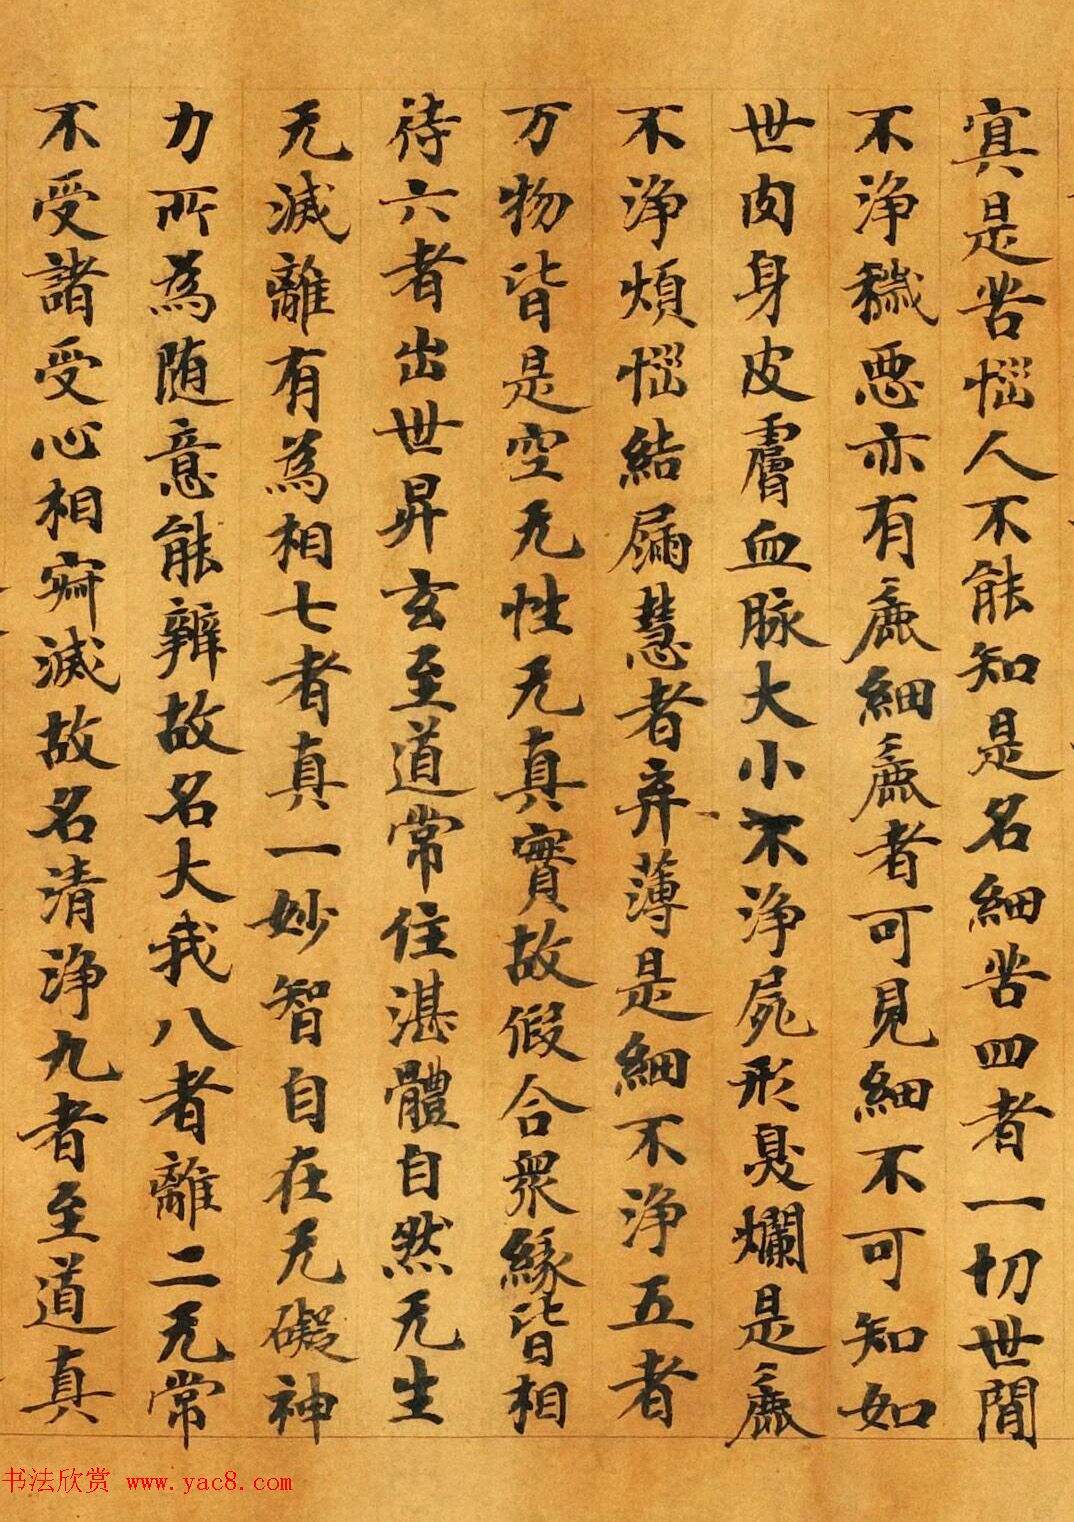 寘是苦惱人不能知是名細苦四者一切世間
不淨穢惡亦有麁細麁者可見細不可知如
世肉身皮膚血脉大小不淨屍形臭爛是麁
不淨煩惱結屬慧者弃薄是細不淨五者
万物皆是空无性无真實故假合衆緣皆相
待六者出世昇玄至道常住湛體自然无生
无滅離有為相七者真一妙智自在无礙神
力所為随意能辦故名大我八者離二无常
不受諸受心相寂滅故名清淨九者至道真
书法欣赏 www.yac8.com